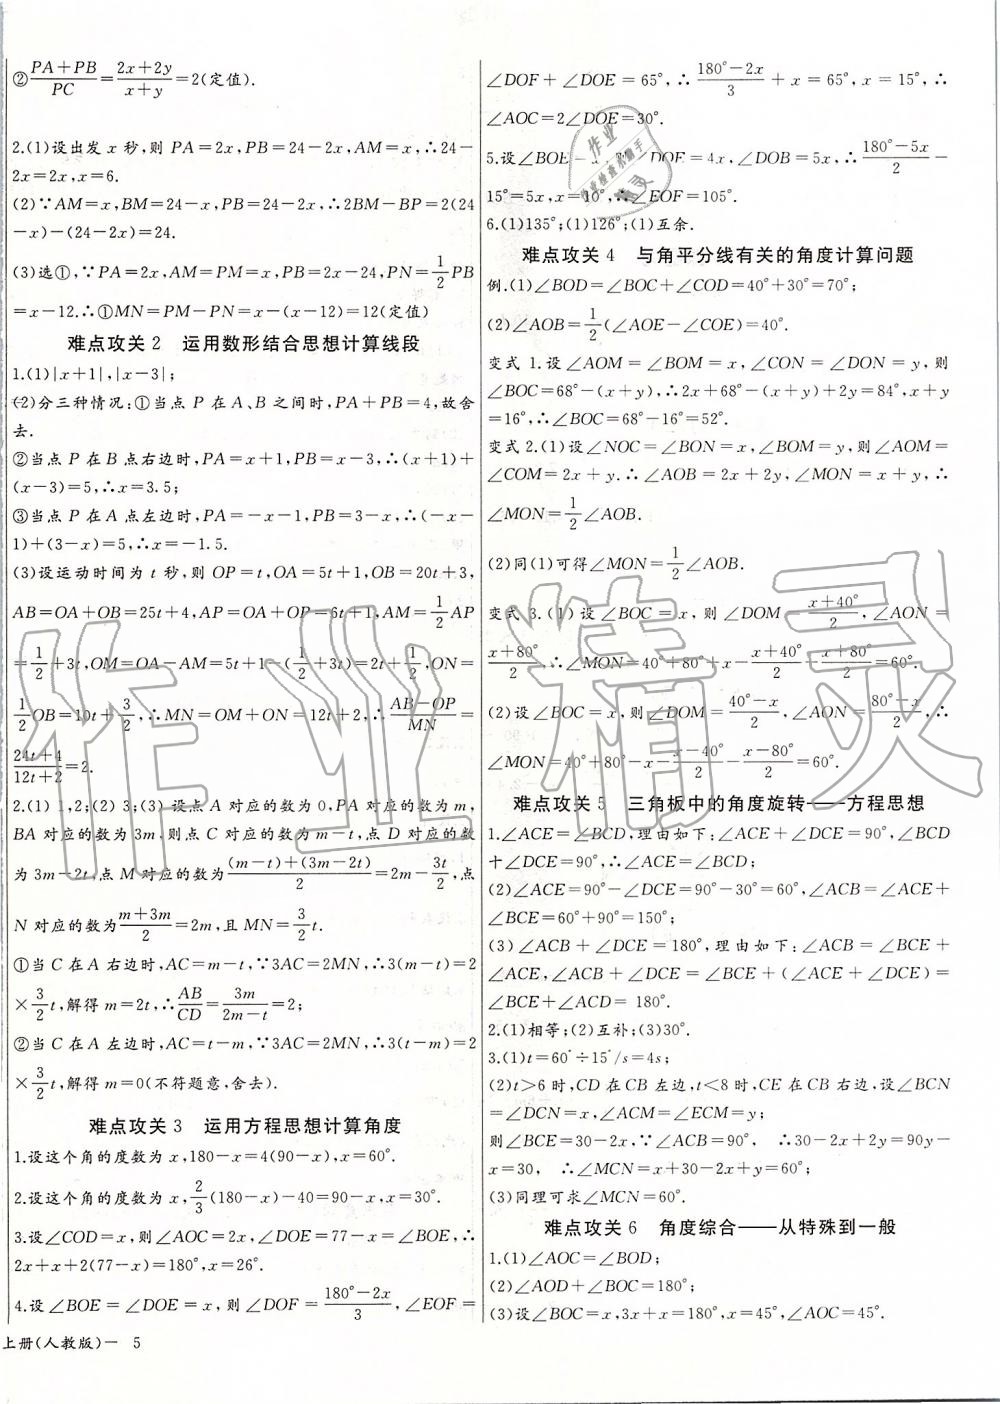 ②(PA+PB)/PC=(2x+2y)/(x+y)=2(定值).
2.(1)设出发 x 秒,则 PA=2x,PB=24-2x,AM=x,∴24-
2x=2x,x=6.
(2)∵AM=x,BM=24-x,PB=24-2x,∴2BM-BP=2(24
-x)-(24-2x)=24.
(3)选①,∵PA=2x,AM=PM=x,PB=24-2x,PN=1/2PB
=x-12.∴①MN=PM-PN=x-(x-12)=12(定值)
难点攻关 2 运用数形结合思想计算线段
1.(1)|x+1|,|x-3|;
(2)分三种情况:①当点 P 在 A、B 之间时,PA+PB=4,故舍
去.
②当点 P 在 B 点右边时,PA=x+1,PB=x-3,∴(x+1)+
(x-3)=5,∴x=3.5;
③当点 P 在 A 点左边时,PA=-x-1,PB=3-x,∴(-x-
1)+(3-x)=5,∴x=-1.5.
(3)设运动时间为 t 秒,则 OP=t,OA=5t+1,OB=20t+3,
AB=OA+OB=25t+4,AP=OA+OP=6t+1,AM=1/2AP
=1/2+3t,OM=OA-AM=5t+1-(1/2+3t)=2t+1/2,ON=
1/2OB=10t+3/2,∴MN=OM+ON=12t+2,∴(AB-OP)/MN=
(24t+4)/(12t+2)=2.
2.(1) 1,2;(2) 3;(3) 设点 A 对应的数为 0,PA 对应的数为 m,
BA 对应的数为 3m,则点 C 对应的数为 m-t,点 D 对应的数
为 3m-2t,点 M 对应的数为((m-t)+(3m-2t))/2=2m-3t/2,点
N 对应的数为(m+3m)/2=2m,且 MN=3/2t.
①当 C 在 A 右边时,AC=m-t,∵3AC=2MN,∴3(m-t)=2
×3/2t,解得 m=2t,∴AB/CD=3m/(2m-t)=2;
②当 C 在 A 左边时,AC=t-m,∵3AC=2MN,∴3(t-m)=2
×3/2t,解得 m=0(不符题意,舍去).
难点攻关 3 运用方程思想计算角度
1.设这个角的度数为 x,180-x=4(90-x),x=60°.
2.设这个角的度数为 x,2/3(180-x)-40=90-x,x=30°.
3.设∠COD=x,则∠AOC=2x,∠DOE=77-x=∠BOE,∴
2x+x+2(77-x)=180°,x=26°.
4.设 ∠BOE=∠DOE=x,则 ∠DOF=(180°-2x)/3,∠EOF=
上册(人教版)— 5
∠DOF+∠DOE=65°,∴(180°-2x)/3+x=65°,x=15°,∴
∠AOC=2∠DOE=30°.
5.设∠BOE=x,则∠DOE=4x,∠DOB=5x,∴(180°-5x)/2-
15°=5x,x=10°,∴∠EOF=105°.
6.(1)135°;(1)126°;(1)互余.
难点攻关 4 与角平分线有关的角度计算问题
例.(1)∠BOD=∠BOC+∠COD=40°+30°=70°;
(2)∠AOB=1/2(∠AOE-∠COE)=40°.
变式 1.设∠AOM=∠BOM=x,∠CON=∠DON=y,则
∠BOC=68°-(x+y),∴2x+68°-(x+y)+2y=84°,x+y
=16°,∴∠BOC=68°-16°=52°.
变式 2.(1)设∠NOC=∠BON=x,∠BOM=y,则∠AOM=
∠COM=2x+y.∴∠AOB=2x+2y,∠MON=x+y,∴
∠MON=1/2∠AOB.
(2)同(1)可得∠MON=1/2∠AOB.
变式 3.(1)设∠BOC=x,则∠DOM=(x+40°)/2,∠AON=
(x+80°)/2.∴∠MON=40°+80°+x-(x+40°)/2-(x+80°)/2=60°.
(2)设∠BOC=x,则∠DOM=(40°-x)/2,∠AON=(80°-x)/2,∴
∠MON=40°+80°-x-(x-40°)/2-(x-80°)/2=60°.
难点攻关 5 三角板中的角度旋转——方程思想
1.∠ACE=∠BCD,理由如下:∠ACE+∠DCE=90°,∠BCD
+∠DCE=90°,∴∠ACE=∠BCD;
(2)∠ACE=90°-∠DCE=90°-30°=60°,∠ACB=∠ACE+
∠BCE=60°+90°=150°;
(3)∠ACB+∠DCE=180°,理由如下:∠ACB=∠BCE+
∠ACE,∠ACB+∠DCE=∠BCE+(∠ACE+∠DCE)=
∠BCE+∠ACD=180°.
2.(1)相等;(2)互补;(3)30°.
3.(1)t=60°÷15°/s=4s;
(2)t>6时,CD在CB左边,t<8时,CE在CB右边,设∠BCN
=∠DCN=x,∠ACM=∠ECM=y,
则∠BCE=30-2x,∵∠ACB=90°,∴30-2x+2y=90,y
-x=30, ∴∠MCN=x+30-2x+y=60°;
(3)同理可求∠MCN=60°.
难点攻关 6 角度综合——从特殊到一般
1.(1)∠AOC=∠BOD;
(2)∠AOD+∠BOC=180°;
(3)设∠BOC=x,3x+x=180°,x=45°,∠AOC=45°.
作业精灵